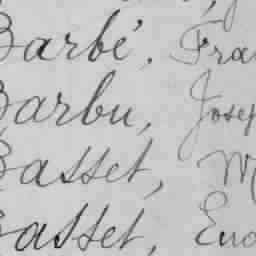 Barbé, Fra
Barbu, Josep
Basset, M
Basset, End